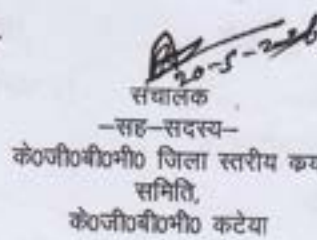 20-5-2026
संचालक
–सह–सदस्य–
के०जी०बी०भी० जिला स्तरीय क्रय
समिति,
के०जी०बी०भी० कटेया